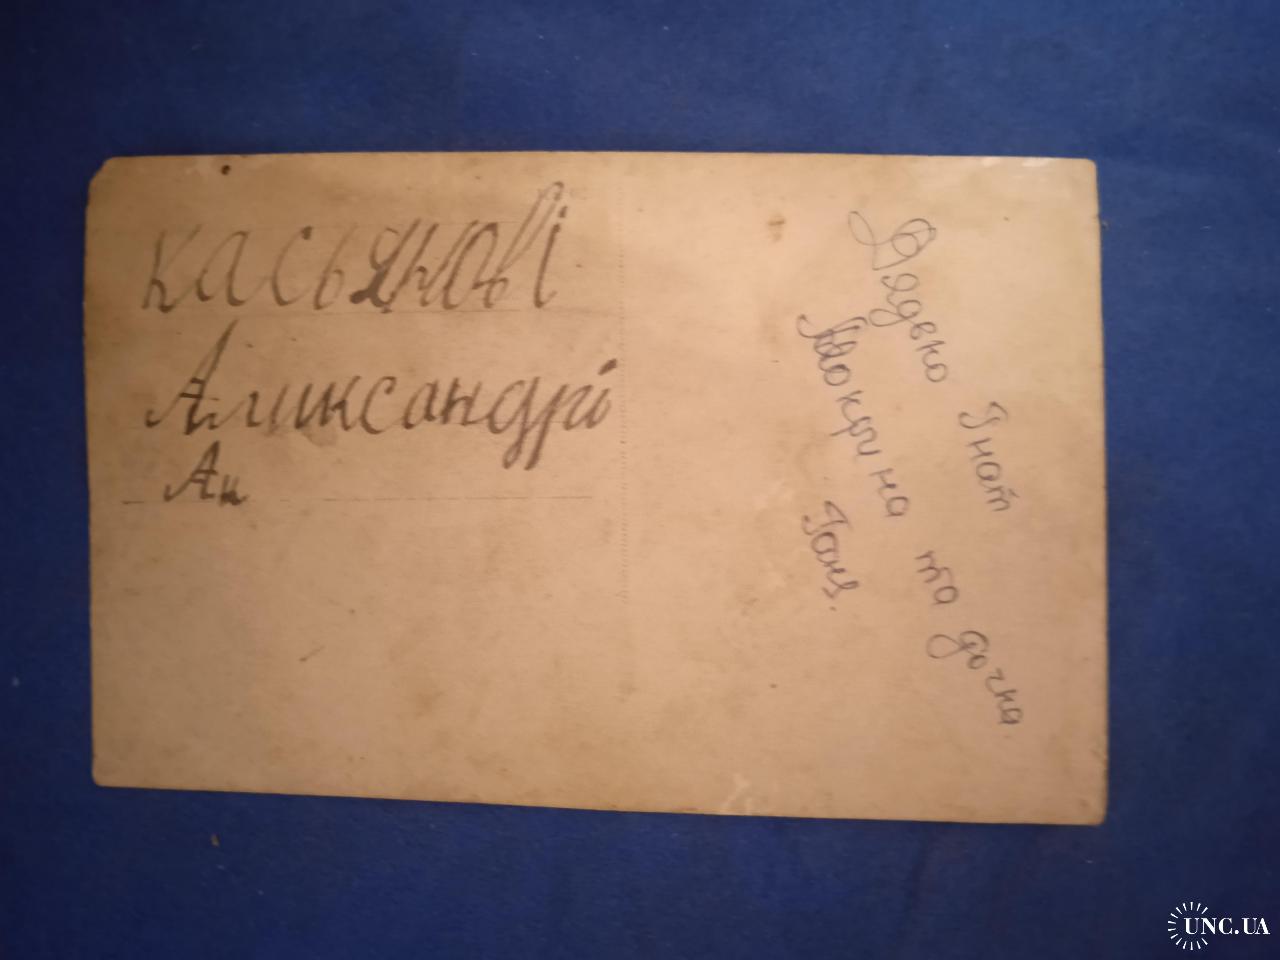 касьянові
Аликсандрі
Ан
Дядько Гнат
Мокрина та дочка
Ганя.
UNC.UA